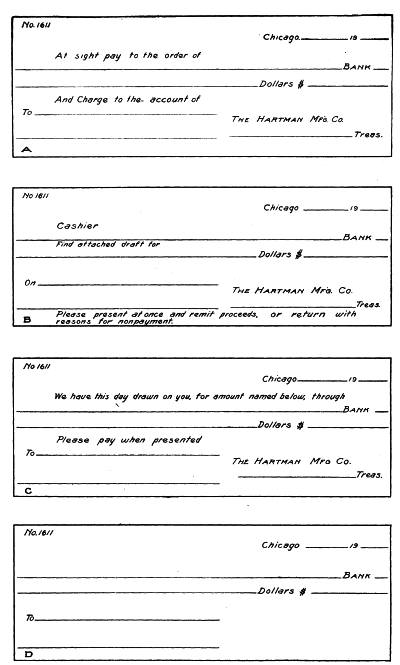 No. 1611
Chicago 19
At sight pay to the order of
BANK
Dollars $
And Charge to the account of
To
THE HARTMAN Mfg. Co.
Treas.
A
No 1611
Chicago 19
Cashier
BANK
Find attached draft for
Dollars $
On
THE HARTMAN Mfg. Co.
Treas.
B Please present at once and remit proceeds, or return with
reasons for nonpayment.
No 1611
Chicago 19
We have this day drawn on you, for amount named below, through
BANK
Dollars $
Please pay when presented
To
THE HARTMAN Mfg Co.
Treas.
C
No. 1611
Chicago 19
BANK
Dollars $
To
D